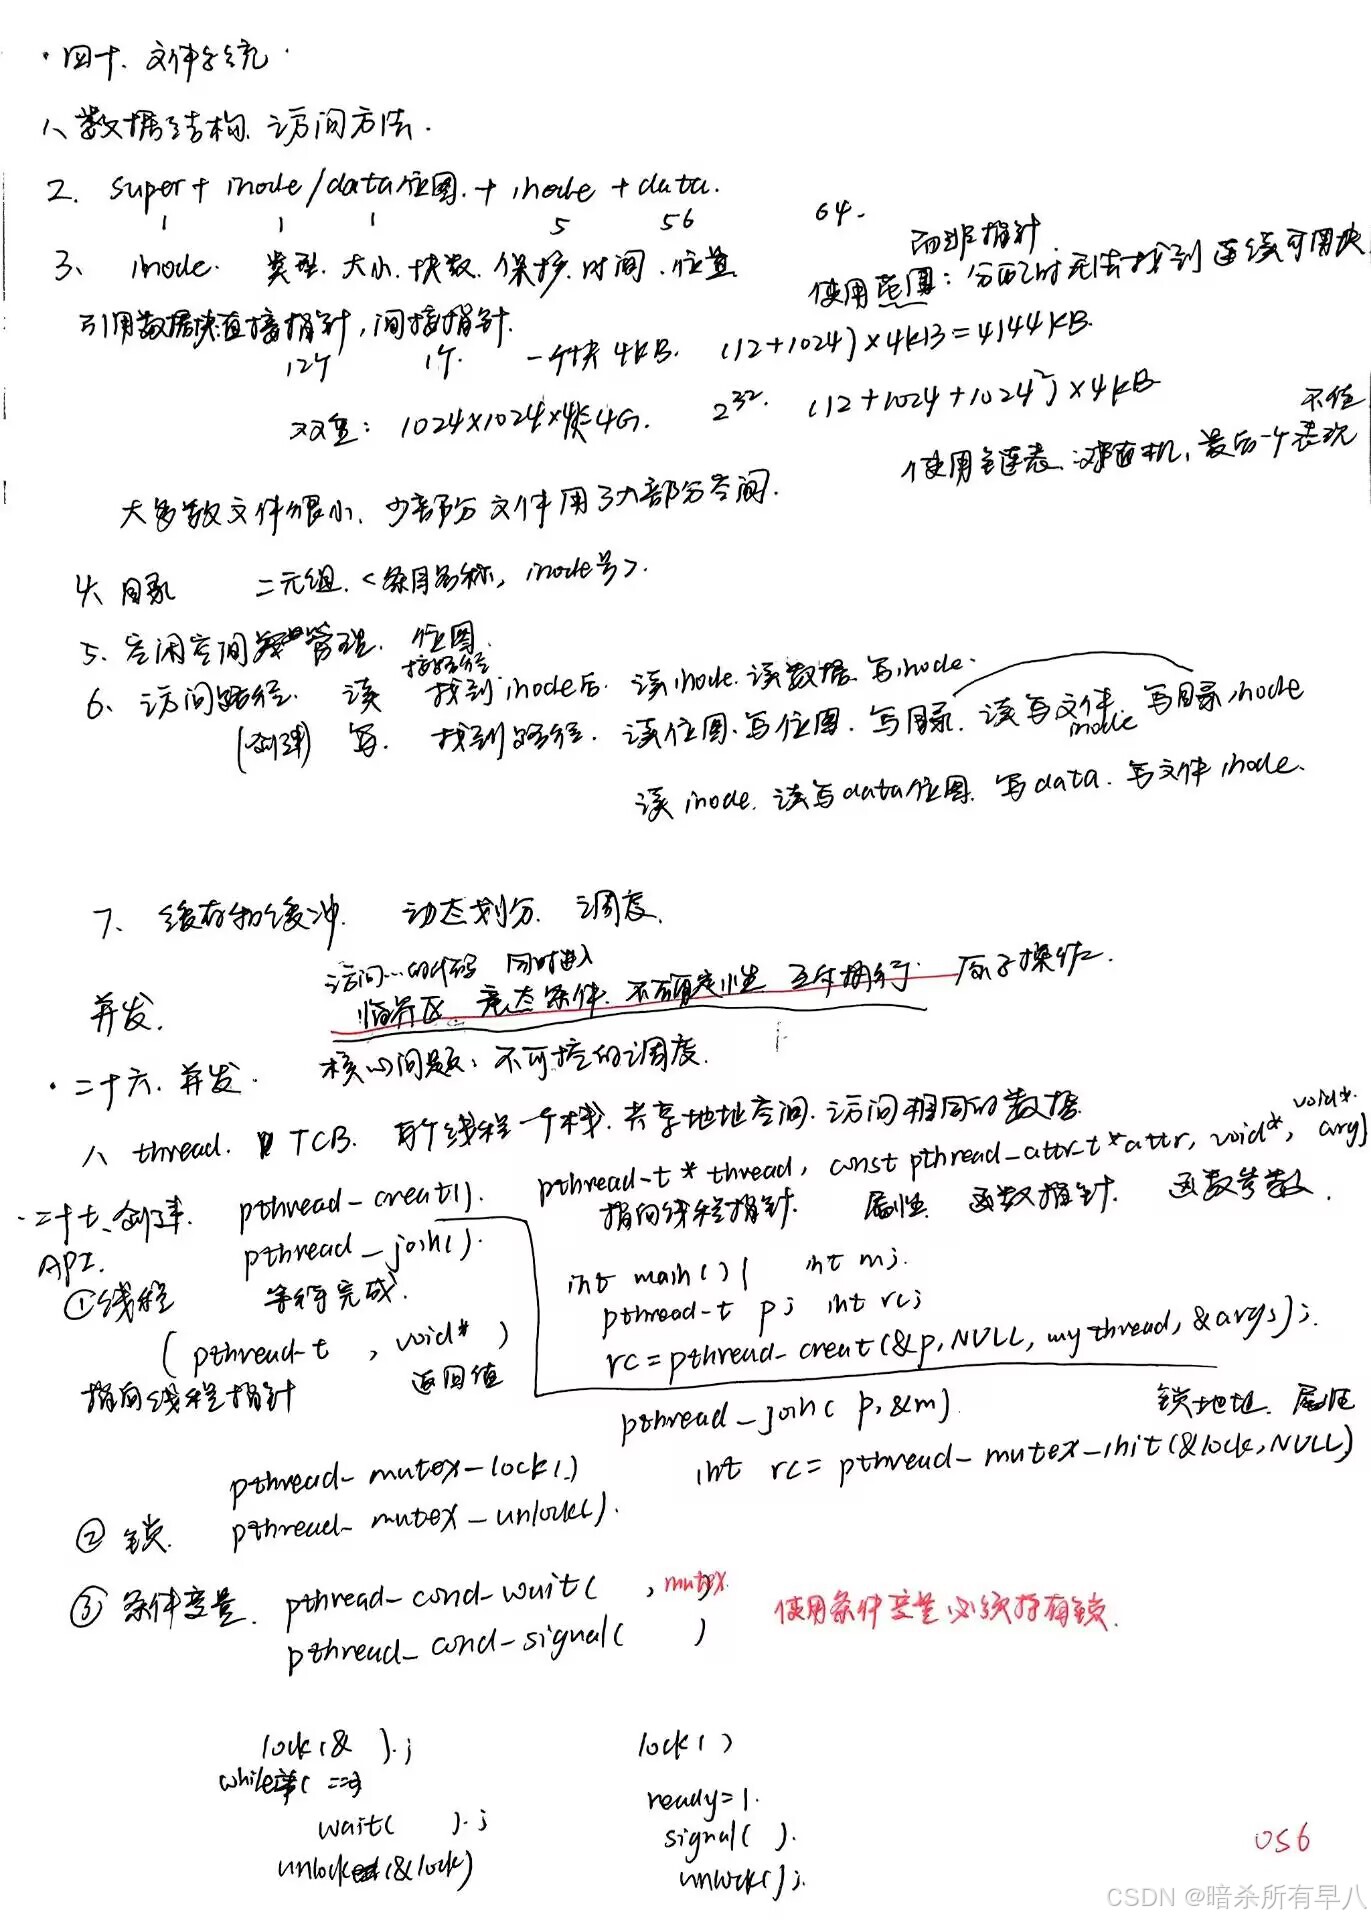 ·四十、文件系统·
1、数据结构、访问方法.
2. super + inode/data位图 + inode + data.
1 1 1 5 56 64.
3、inode. 类型.大小.块数.保护.时间.位置
而非指针.
使用范围：分配时无法找到连续可用块
引用数据块直接指针,间接指针.
12个 1个. 一个块4KB. (12+1024)×4KB=4144KB.
双重：1024×1024×4K=4G. 2^32. (12+1024+1024^2)×4KB
不佳
使用链表.对随机,最后一个表现
大多数文件很小、少部分文件用了大部分空间.
4、目录 二元组.<条目名称, inode号>.
5、空闲空间管理. 位图.
按路径
6、访问路径. 读 找到inode后.读inode.读数据.写inode.
(创建) 写. 找到路径.读位图.写位图.写目录.读写文件inode 写目录inode
读inode.读写data位图.写data.写文件inode.
7、缓存和缓冲. 动态划分. 调度.
访问…的代码 同时进入
并发. 临界区 竞态条件.不确定性 互斥执行. 原子操作.
核心问题：不可控的调度.
·二十六.并发.
1、thread. TCB. 每个线程一个栈.共享地址空间.访问相同的数据
void*.
·二十七、创建 pthread_creat(). pthread_t * thread, const pthread_attr_t *attr, void*, arg)
指向线程指针. 属性. 函数指针. 函数参数.
API. pthread_join().
①线程 等待完成.
int main(){ int m;
(pthread_t , void* ) pthread_t p; int rc;
指向线程指针 返回值 rc=pthread_creat(&p,NULL,mythread,&args);
pthread_join( p,&m) 锁地址. 属性
pthread_mutex_lock() int rc= pthread_mutex_init(&lock,NULL)
②锁. pthread_mutex_unlock().
③条件变量. pthread_cond_wait( ,mutex 使用条件变量必须持有锁.
pthread_cond_signal( )
lock(& ).; lock( )
while( == ready=1.
wait( ).; signal( ).
unlock(&lock) unlock();
056
CSDN @暗杀所有早八